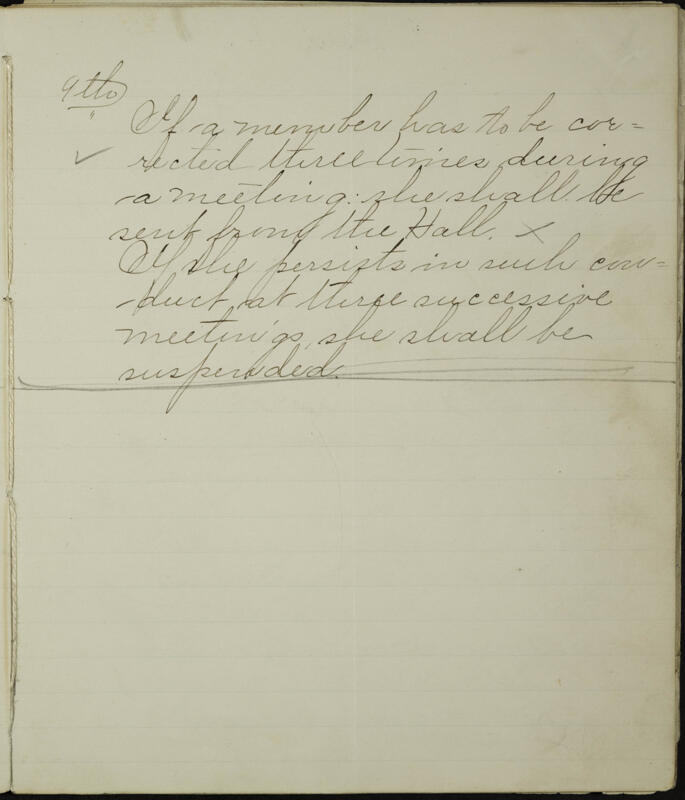 9th
If a member has to be cor=
rected three times during
a meeting: she shall be
sent from the Hall. x
If she persists in such con=
duct, at three successive
meetings, she shall be
suspended.